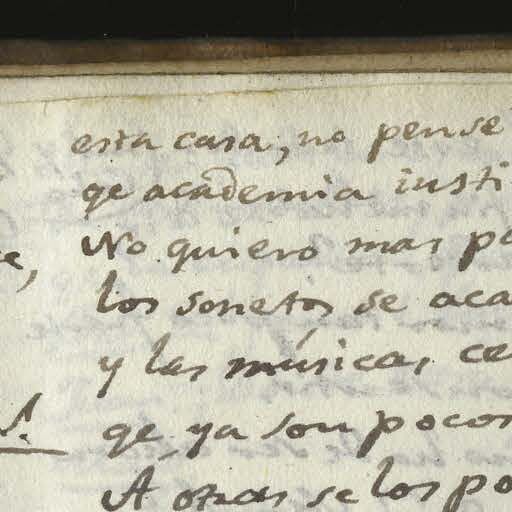 esta casa, no pense
qe academia insti
No quiero mas pa
los sonetos se aca
y las músicas ce
qe ya son pocos
A otras se los po